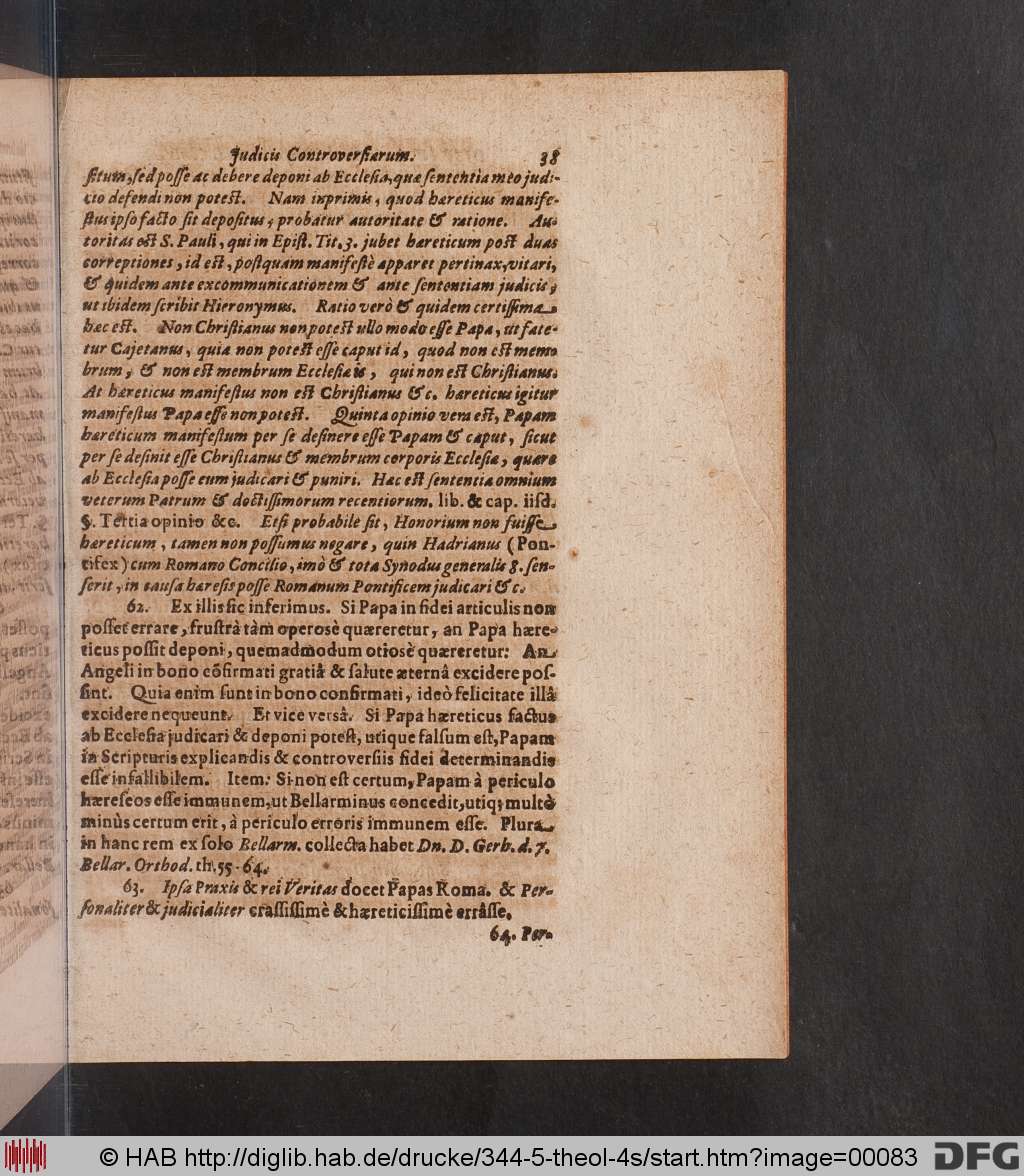 Judicis Controversiarum. 38
situm, sed posse ac debere deponi ab Ecclesia, quæ sententia meo judi-
cio defendi non potest. Nam inprimis, quod hæreticus manife-
stus ipso facto sit depositus, probatur autoritate & ratione. Au-
toritas est S. Pauli, qui in Epist. Tit. 3. jubet hæreticum post duas
correptiones, id est, postquam manifestè apparet pertinax, vitari,
& quidem ante excommunicationem & ante sententiam judicis,
ut ibidem scribit Hieronymus. Ratio verò & quidem certissima
hæc est. Non Christianus non potest ullo modo esse Papa, ut fate-
tur Cajetanus, quia non potest esse caput id, quod non est mem
brum, & non est membrum Ecclesiæ is, qui non est Christianus.
At hæreticus manifestus non est Christianus &c. hæreticus igitur
manifestus Papa esse non potest. Quinta opinio vera est, Papam
hæreticum manifestum per se desinere esse Papam & caput, sicut
per se desinit esse Christianus & membrum corporis Ecclesiæ, quare
ab Ecclesia posse eum judicari & puniri. Hæc est sententia omnium
veterum Patrum & doctissimorum recentiorum. lib. & cap. iisd.
§. Tertia opinio &c. Etsi probabile sit, Honorium non fuisse
hæreticum, tamen non possumus negare, quin Hadrianus (Pon-
tifex) cum Romano Concilio, imò & tota Synodus generalis 8. sen-
serit, in causa hæresis posse Romanum Pontificem judicari &c.
62. Ex illis sic inferimus. Si Papa in fidei articulis non
posset errare, frustrà tàm operosè quæreretur, an Papa hære-
ticus possit deponi, quemadmodum otiosè quæreretur: An
Angeli in bono cõfirmati gratiâ & salute æternâ excidere pos-
sint. Quia enim sunt in bono confirmati, ideò felicitate illâ
excidere nequeunt. Et vice versâ. Si Papa hæreticus factus
ab Ecclesia judicari & deponi potest, utique falsum est, Papam
in Scripturis explicandis & controversiis fidei determinandis
esse infallibilem. Item: Si non est certum, Papam à periculo
hæreseos esse immunem, ut Bellarminus concedit, utiq; multò
minùs certum erit, à periculo erroris immunem esse. Plura
in hanc rem ex solo Bellarm. collecta habet Dn. D. Gerh. d. 7.
Bellar. Orthod. th. 55-64.
63. Ipsa Praxis & rei Veritas docet Papas Roma. & Per-
sonaliter & judicialiter crassissimè & hæreticissimè errâsse.
64. Per-
© HAB http://diglib.hab.de/drucke/344-5-theol-4s/start.htm?image=00083
DFG